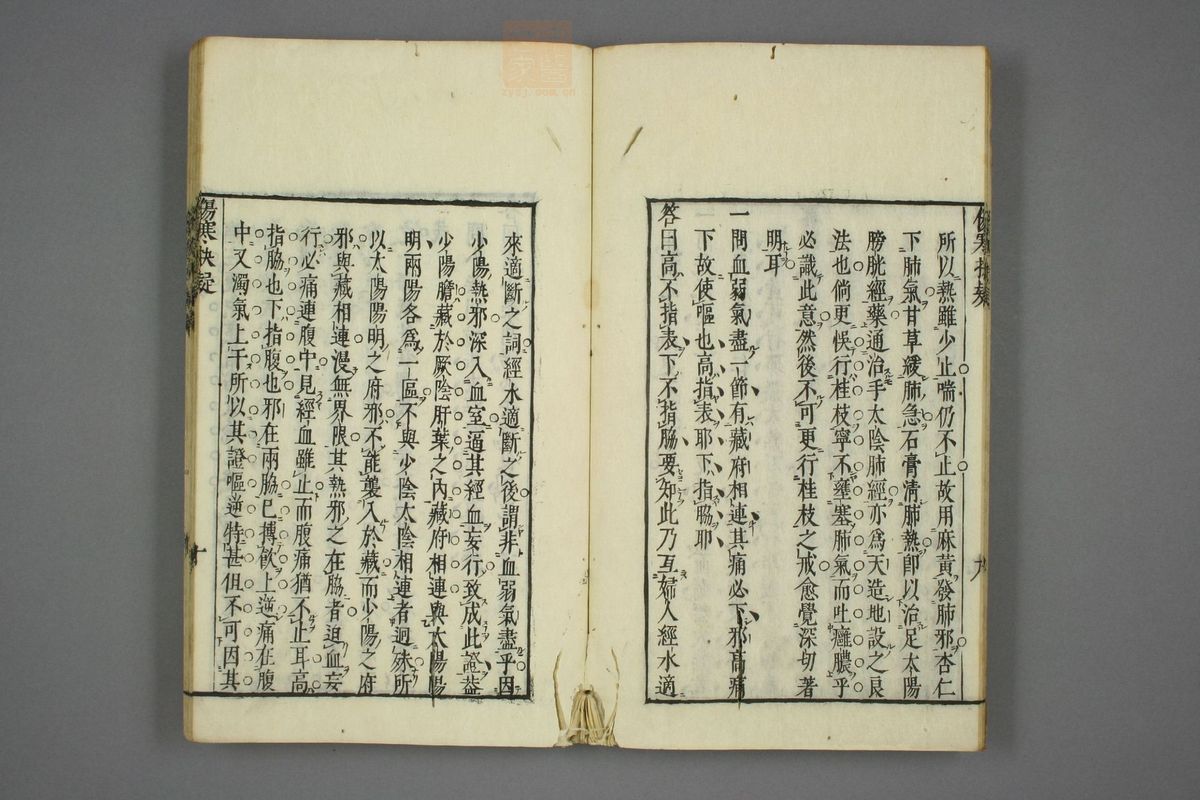 所以熱雖少止喘仍不止故用麻黃發肺邪杏仁
下肺氣甘草緩肺急石膏清肺熱卽以治足太陽
膀胱經藥通治手太陰肺經亦爲天造地設之良
法也倘更悞行桂枝寧不壅塞肺氣而吐癰膿乎
必識此意然後不可更行桂枝之戒愈覺深切著
明耳
一問血弱氣盡一節有藏府相連其痛必下邪高痛
下故使嘔也高指表耶下指脇耶
答曰高不指表下不指脇要知此乃互婦人經水適
來適斷之詞經水適斷之後謂非血弱氣盡乎因
少陽熱邪深入血室逼其經血妄行致成此證葢
少陽膽藏於厥陰肝葉之內藏府相連與太陽陽
明兩陽各爲一區不與少陰太陰相連者迥殊所
以太陽陽明之府邪不能襲入於藏而少陽之府
邪與藏相連漫無界限其熱邪之在脇者迫血妄
行必痛連腹中見經血雖止而腹痛猶不止耳高
指脇也下指腹也邪在兩脇已搏飲上逆痛在腹
中又濁氣上干所以其證嘔逆特甚但不可因其
傷寒抉疑
九
十
zysj.com.cn